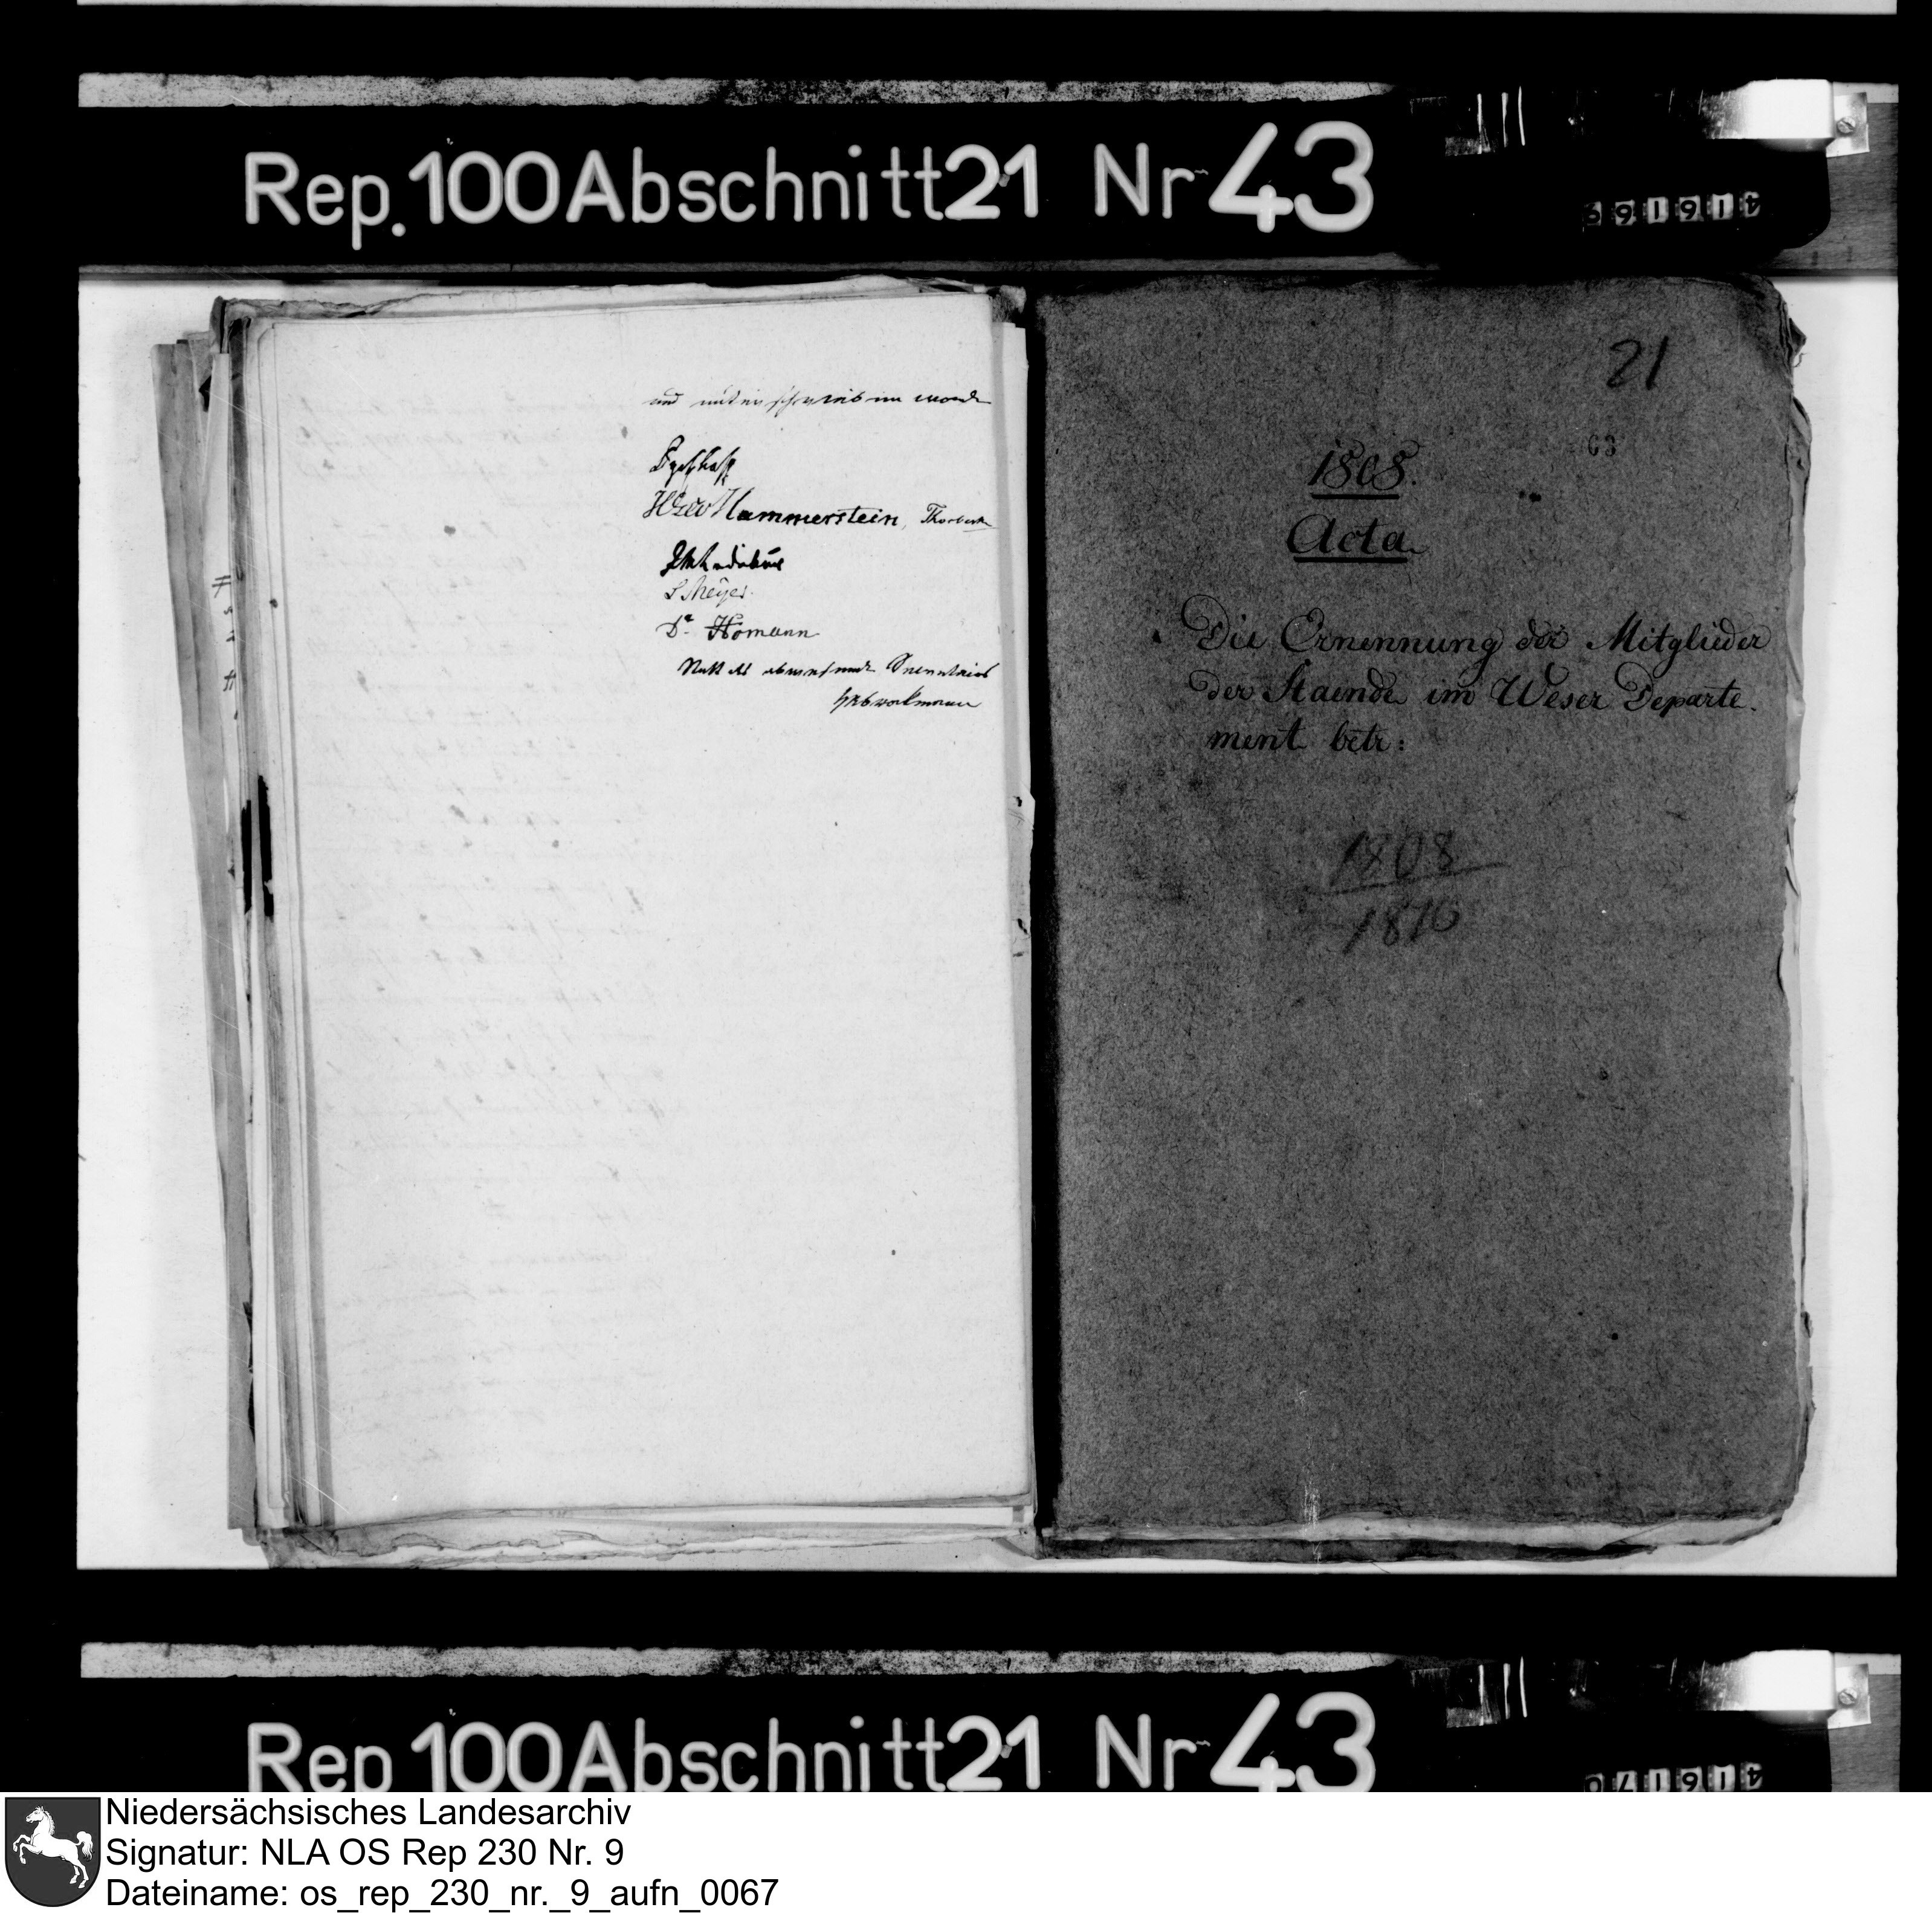 Rep. 100 Abschnitt 21 Nr 43
416169
und unterschrieben worden
Hammerstein,
S Meyer.
Dr. Homann
21
63
1808.
Acta
Die Ernennung der Mitglieder
der Staende im Weser Departe-
ment betr:
1808
1810
Rep 100 Abschnitt 21 Nr 43
416170
Niedersächsisches Landesarchiv
Signatur: NLA OS Rep 230 Nr. 9
Dateiname: os_rep_230_nr._9_aufn_0067